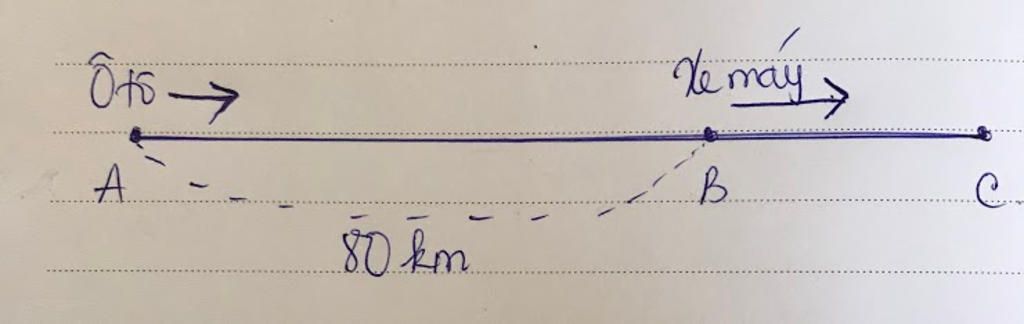 Ô tô Xe máy
A B C
80 km